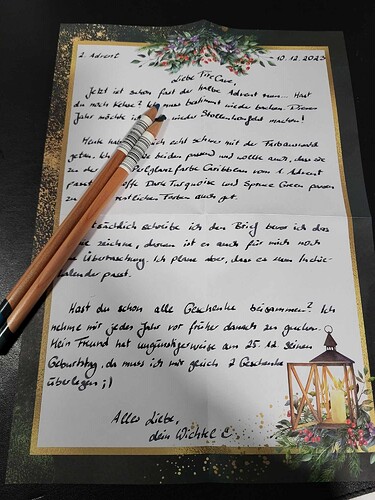 2. Advent 10.12.2023
Liebe TineCave,
Jetzt ist schon fast der halbe Advent rum... Hast
du noch Kekse? Ich muss bestimmt wieder backen. Dieses
Jahr möchte ich wieder Stollenkonfekt machen!
Heute habe ich echt schwer mit der Farbauswahl
getan. Ich beiden passend und wollte auch, dass sie
zu der Perlglanzfarbe Caribbean vom 1 Advent
passt. Dark Turquoise und Spruce Green passen
zu Farben auch gut.
schreibe ich den Brief bevor ich das
zeichne, darum ist es auch für mich noch
Überraschung. Ich plane aber, dass es zum
kalender passt.
Hast du schon alle Geschenke beisammen? Ich
nehme mir jedes Jahr vor früher danach zu gucken.
Mein Freund hat ungünstigerweise am 25.12 seinen
Geburtstag, da muss ich mir gleich 2 Geschenke
überlegen ;)
Alles Liebe,
dein Wichtel C.